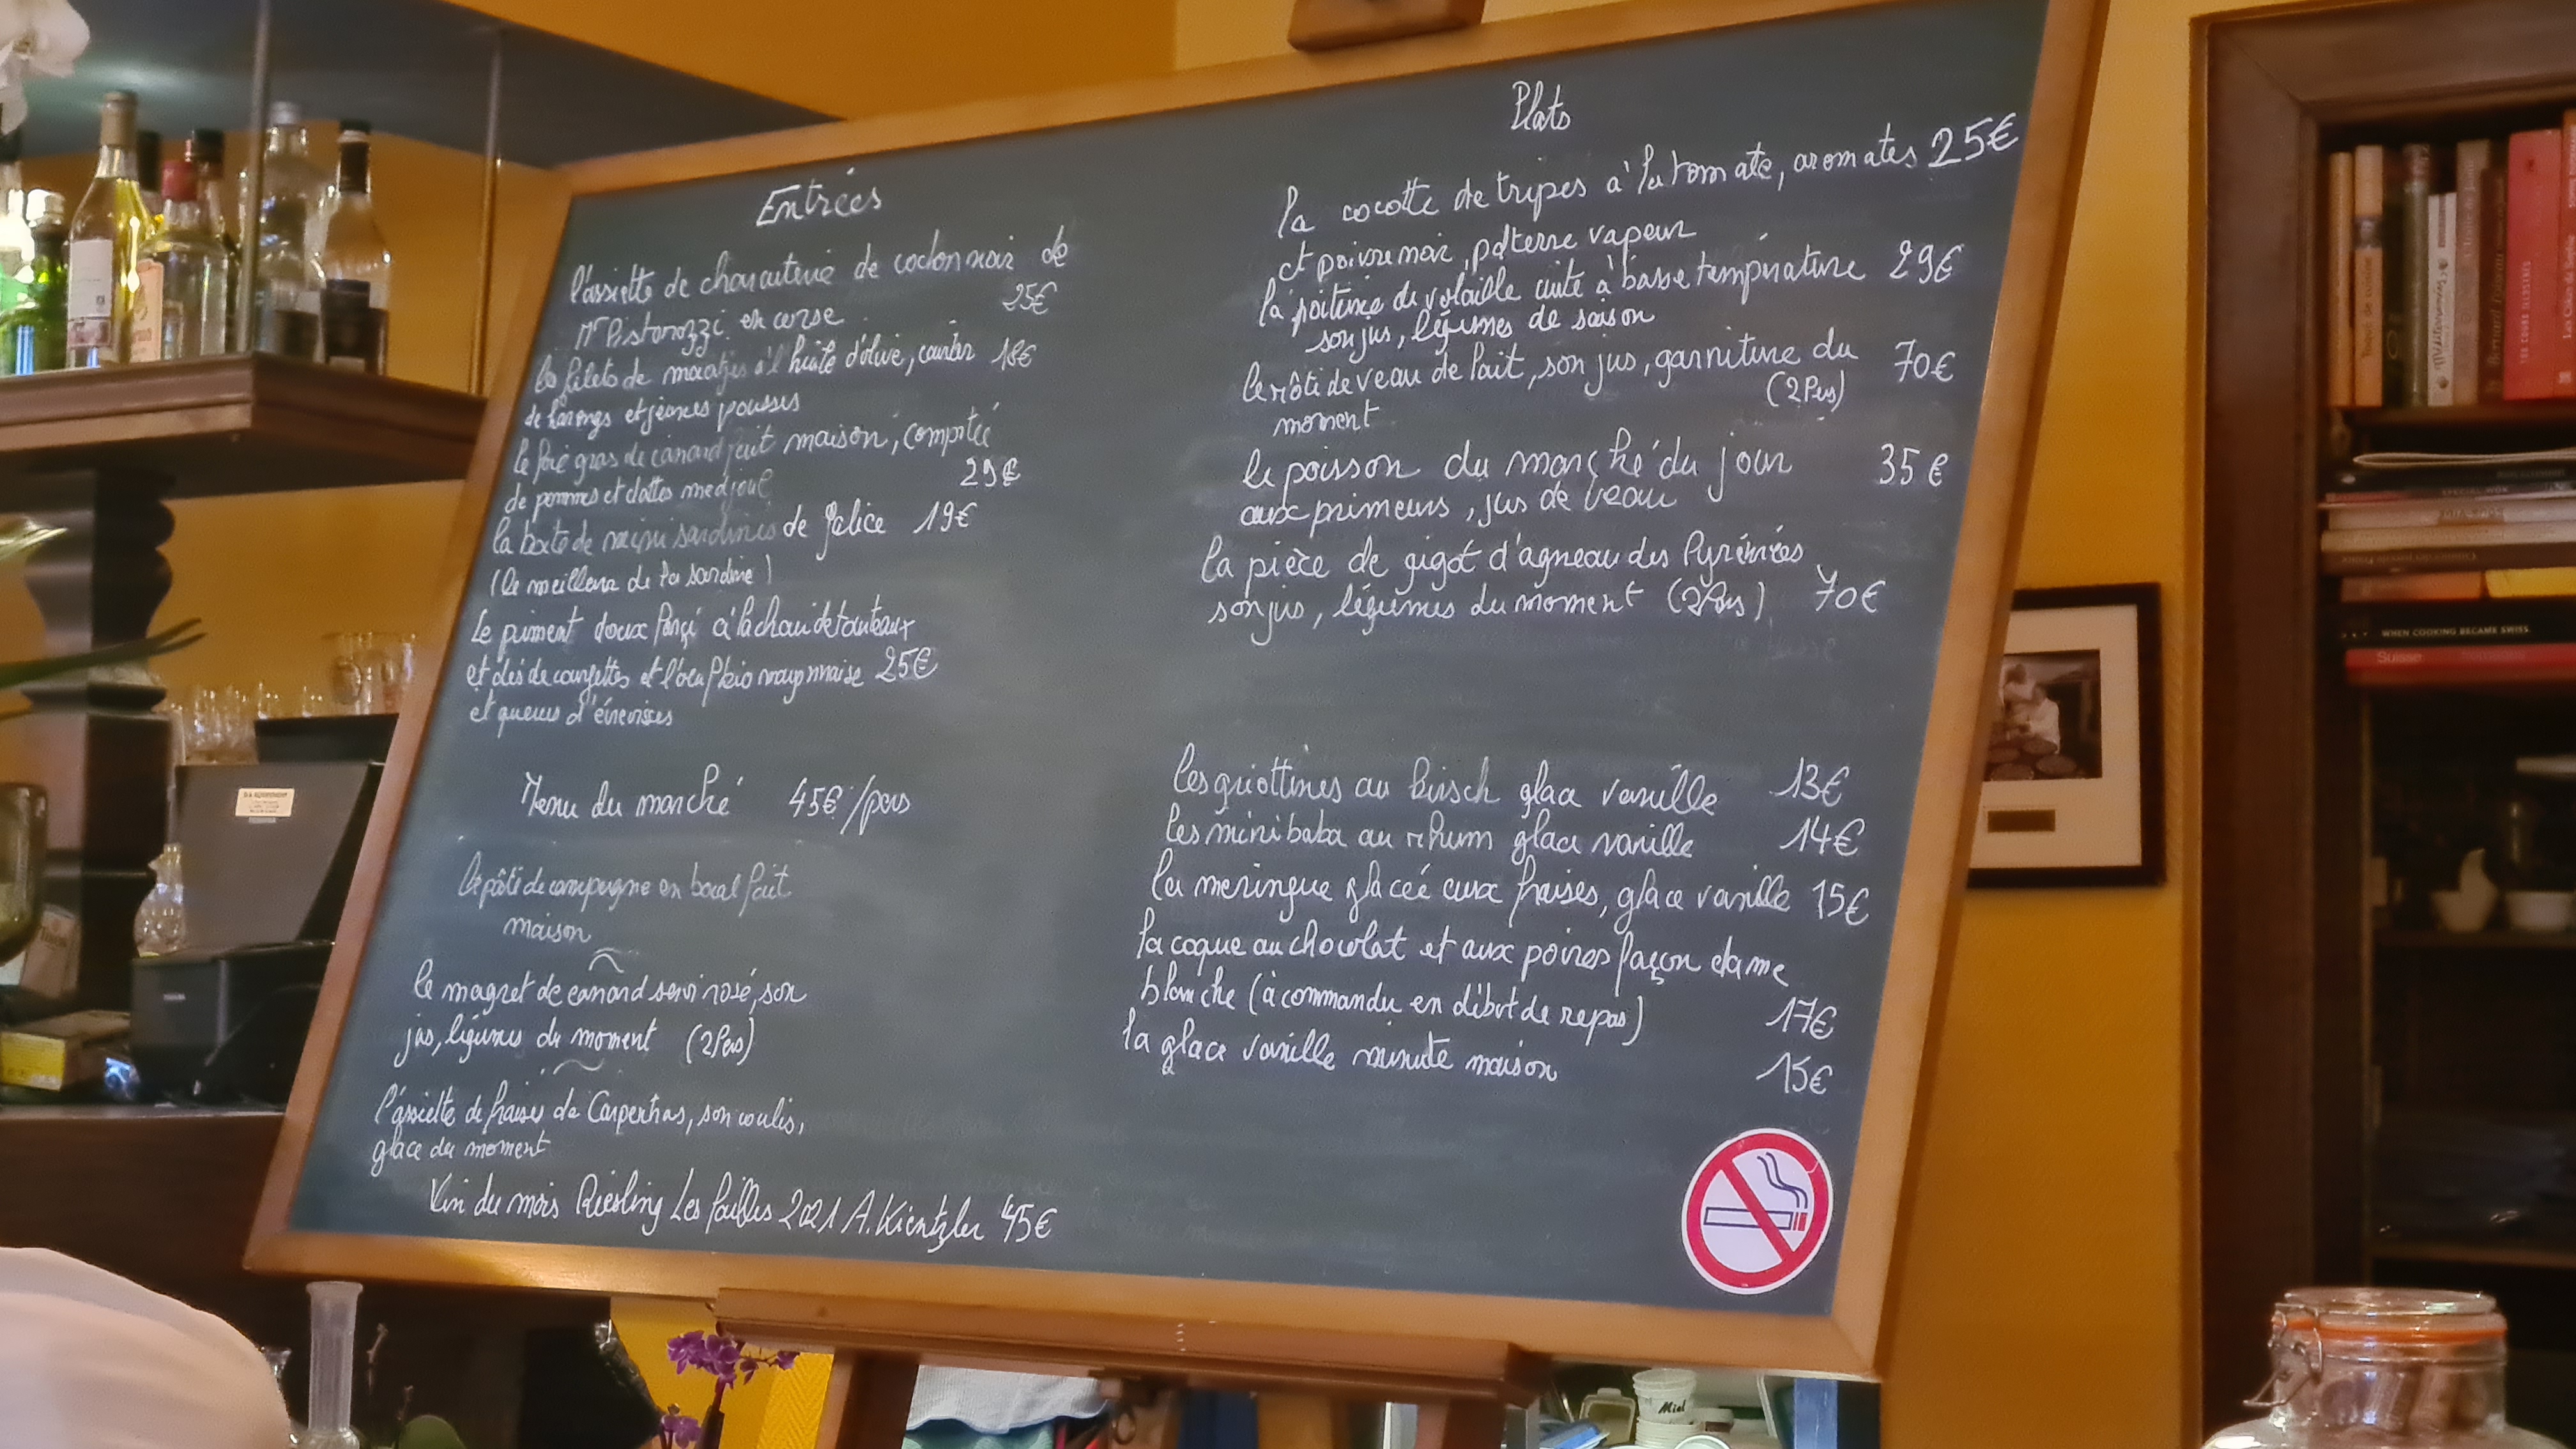 Entrées
l'assiette de charcuterie de cochon noir de
Mr Pistorozzi en corse 25€
les filets de maatjes à l'huile d'olive, caviar 18€
de harengs et jeunes pousses
le foie gras de canard fait maison, compotée
de pommes et dattes medjoul 29€
la boite de mini sardines de Galice 19€
(le meilleur de la sardine)
Le piment doux farçi à la chair de tourteaux
et dés de courgettes et l'oeuf bio mayonnaise 25€
et queues d'écrevisses
Menu du marché 45€/pers
le pâté de campagne en bocal fait
maison
le magret de canard servi rosé, son
jus, légumes du moment (2Pers)
l'assiette de fraises de Carpentras, son coulis,
glace du moment
Vin du mois Riesling Les 2021 A. Kientzler 45€
Plats
la cocotte de tripes à la tomate, aromates 25€
et poivre noir, pdterre vapeur
la poitrine de volaille cuite à basse température 29€
son jus, légumes de saison
le rôti de veau de lait, son jus, garniture du 70€
moment (2Pers)
le poisson du marché du jour 35€
aux primeurs, jus de veau
la pièce de gigot d'agneau des Pyrénées
son jus, légumes du moment (2Pers) 70€
les griottines au kirsch glace vanille 13€
les mini baba au rhum glace vanille 14€
la meringue glaceé aux fraises, glace vanille 15€
la coque au chocolat et aux poires façon dame
blanche (à commander en début de repas) 17€
la glace vanille minute maison 15€
WHEN COOKING BECAME SWISS
Suisse
Miel